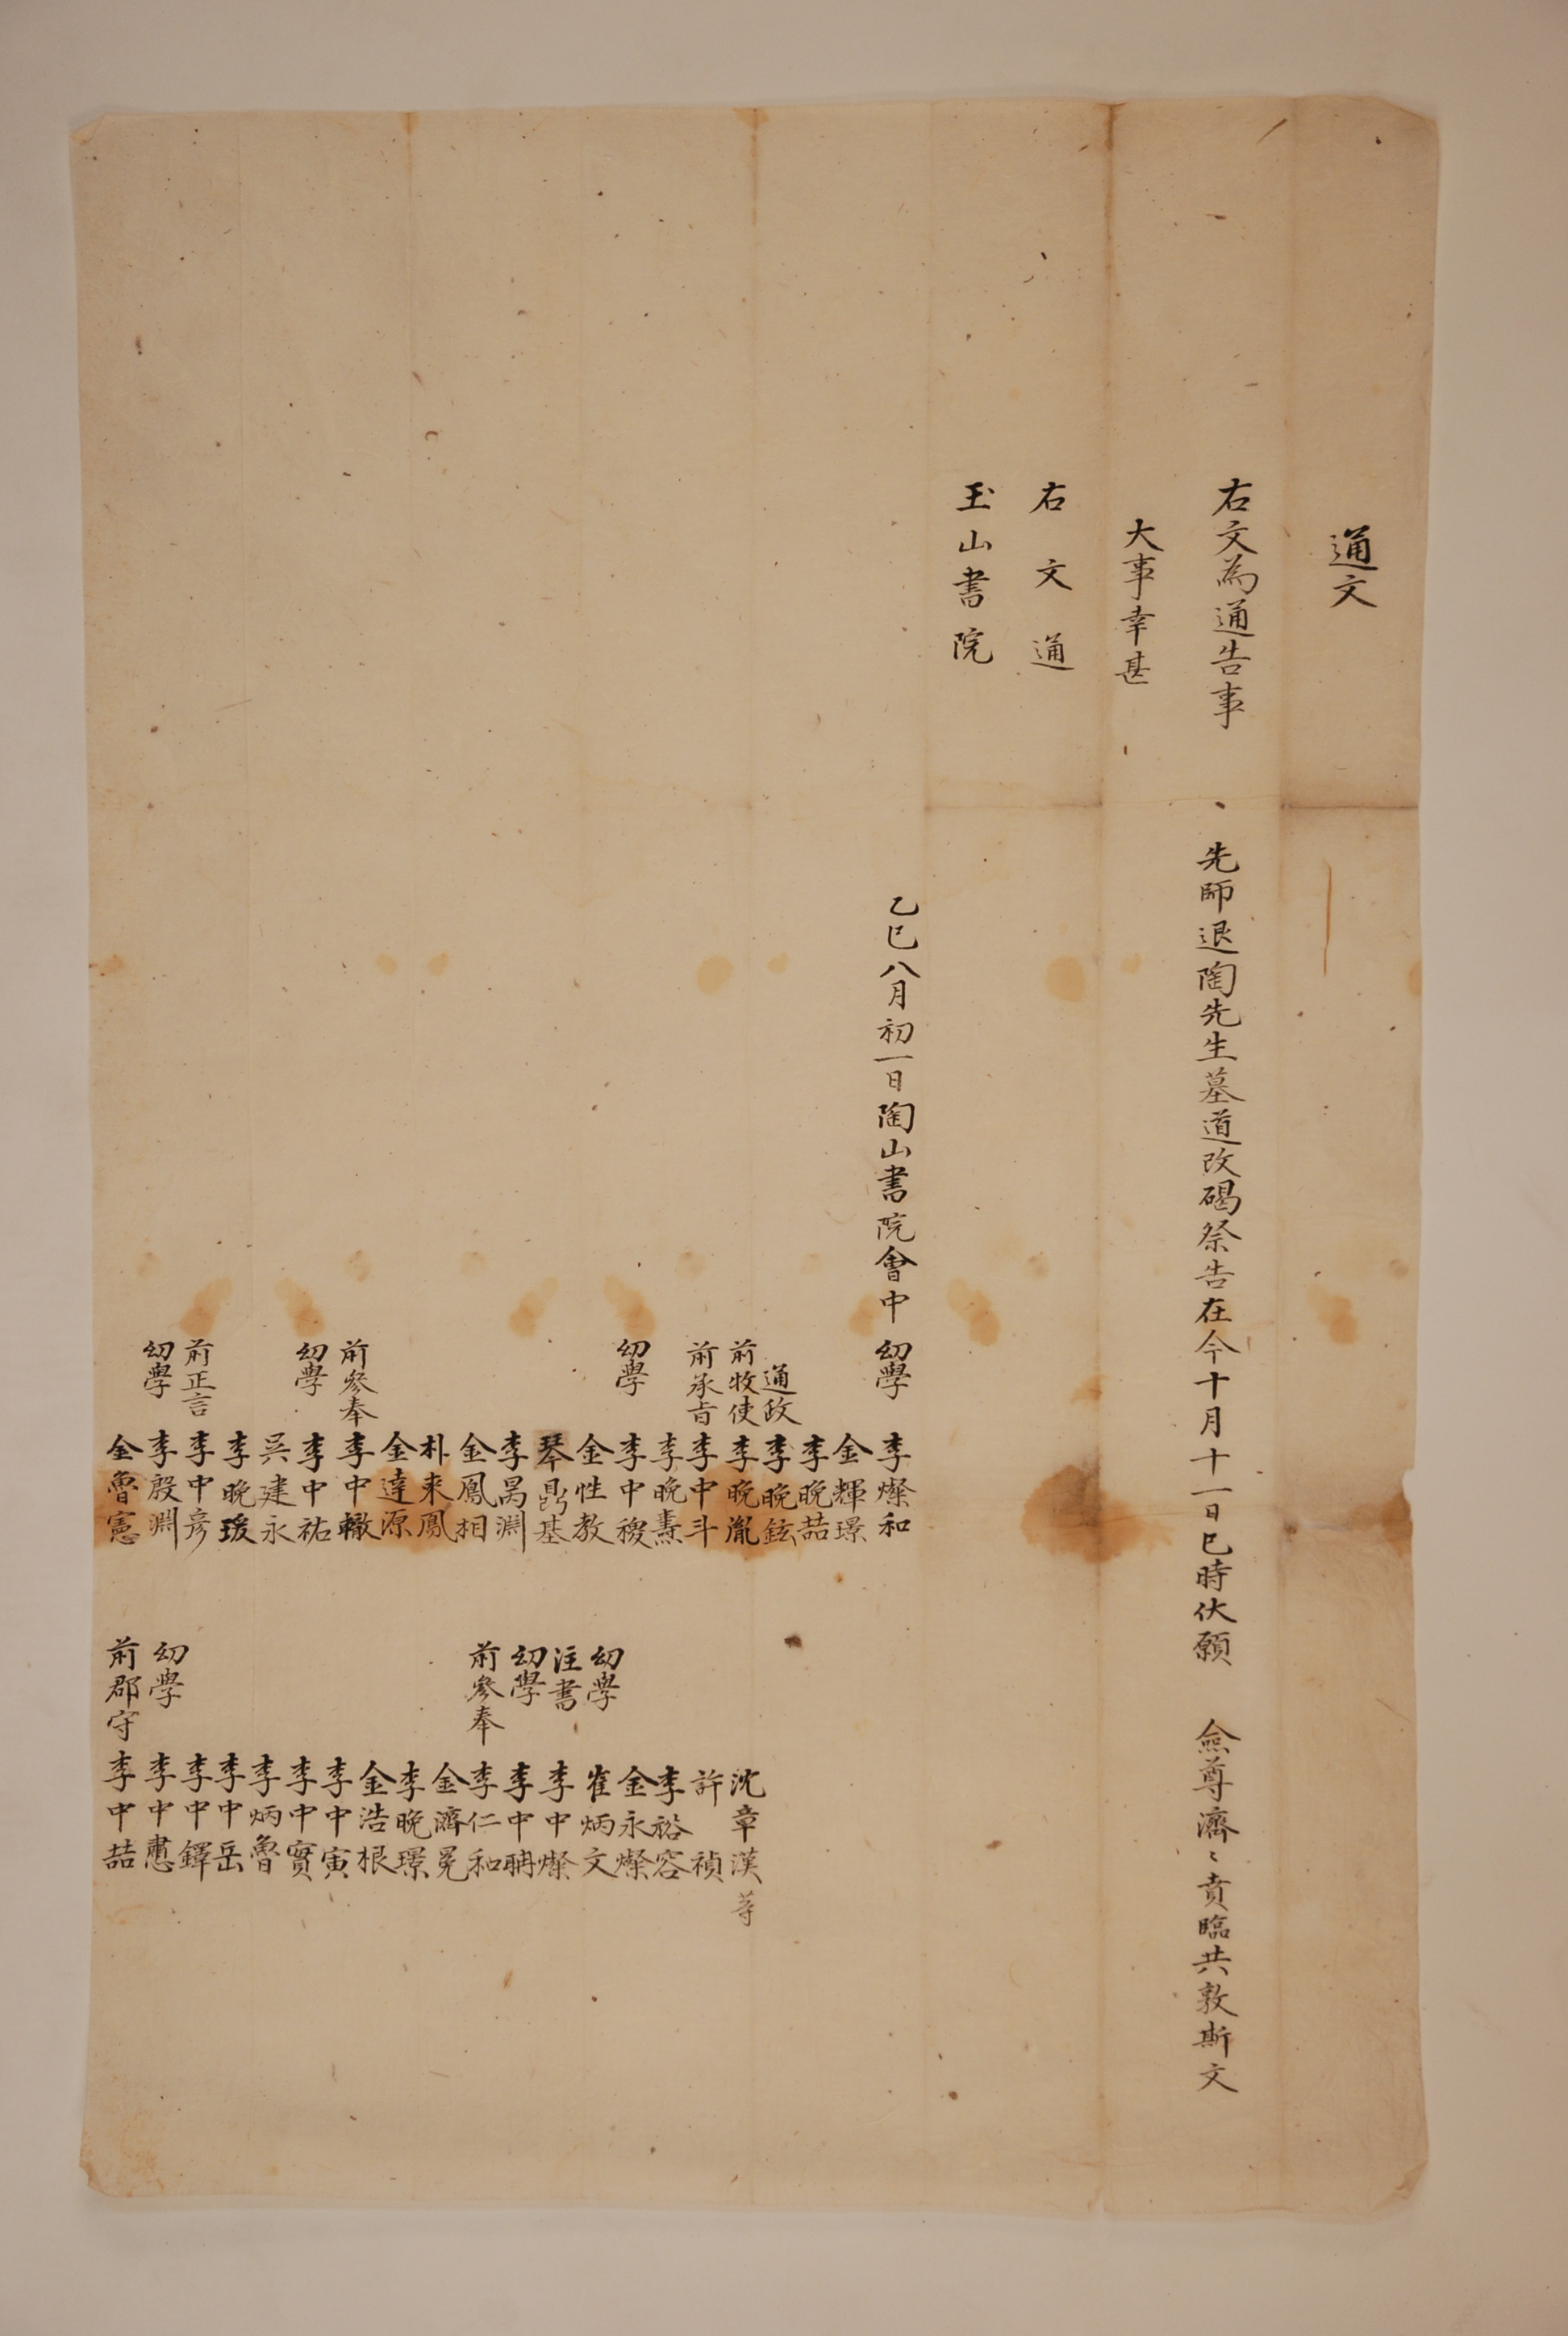 通文
右文為通告事 先師退陶先生墓道改碣祭告在今十月十一日巳時伏願 僉尊濟〻賁臨共敦斯文
大事幸甚
右文通
玉山書院
乙巳八月初一日陶山書院會中 幼學 李燦和
金輝璟
李晩喆
通政 李晩鉉
前牧使 李晩胤
前承旨 李中斗
李晩燾
幼學 李中稷
金性教
琴鼎基
李昺淵
金鳳相
朴来鳳
金達源
前參奉 李中轍
幼學 李中祐
吳建永
李晩瑗
前正言 李中彦
幼學 李殷淵
金魯憲
前郡守 李中喆
幼學 李中憓
李中鐸
李中岳
李炳魯
李中實
李中寅
金浩根
李晩璟
金濟冕
前參奉 李仁和
幼學 李中聃
注書 李中燦
幼學 崔炳文
金永燦
李裕容
許禎
沈章漢等